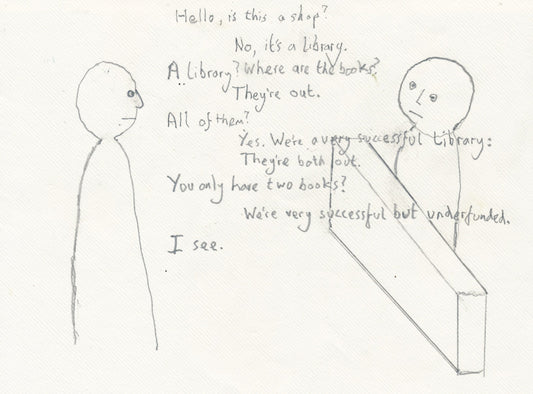 Hello, is this a shop?
No, it's a library.
A library? Where are the books?
They're out.
All of them?
Yes. We're a very successful library:
They're both out.
You only have two books?
We're very successful but underfunded.
I see.